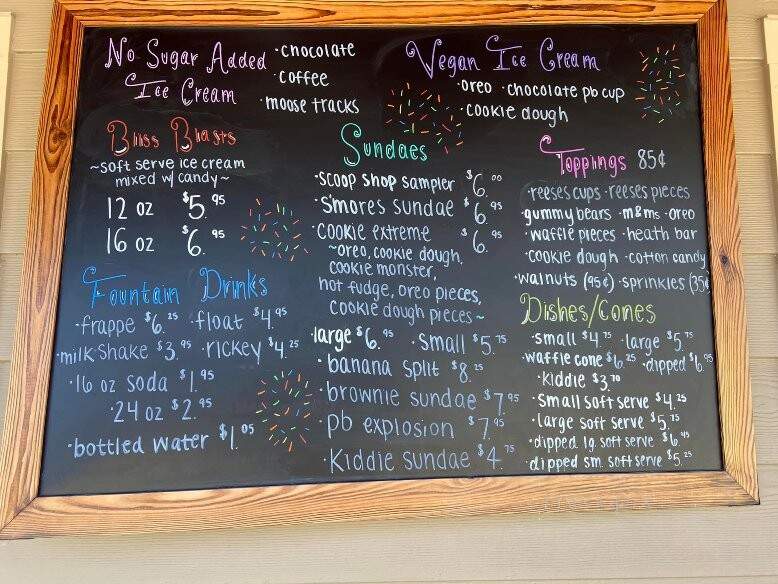 No Sugar Added
Ice Cream
·chocolate
·coffee
·moose tracks
Vegan Ice Cream
·oreo ·chocolate pb cup
·cookie dough
Bliss Blasts
~soft serve ice cream
mixed w/ candy~
12 oz $5.95
16 oz $6.95
Fountain Drinks
·frappe $6.25 ·float $4.95
·milk shake $3.95 ·rickey $4.25
·16 oz soda $1.95
·24 oz $2.95
·bottled water $1.05
Sundaes
·scoop shop sampler $6.00
·S'mores sundae $6.95
·cookie extreme $6.95
~oreo, cookie dough,
cookie monster,
hot fudge, oreo pieces,
cookie dough pieces~
·large $6.95 ·small $5.75
·banana split $8.25
·brownie sundae $7.95
·pb explosion $7.95
·Kiddie sundae $4.75
Toppings 85¢
·reeses cups ·reeses pieces
·gummy bears ·m&ms ·oreo
·waffle pieces ·heath bar
·cookie dough ·cotton candy
·walnuts (95¢) ·sprinkles (35¢
Dishes/Cones
·small $4.75 ·large $5.75
·waffle cone $6.25 ·dipped $6.95
·Kiddie $3.70
·Small soft serve $4.25
·large soft serve $5.75
·dipped lg. soft serve $6.45
·dipped sm. soft serve $5.25